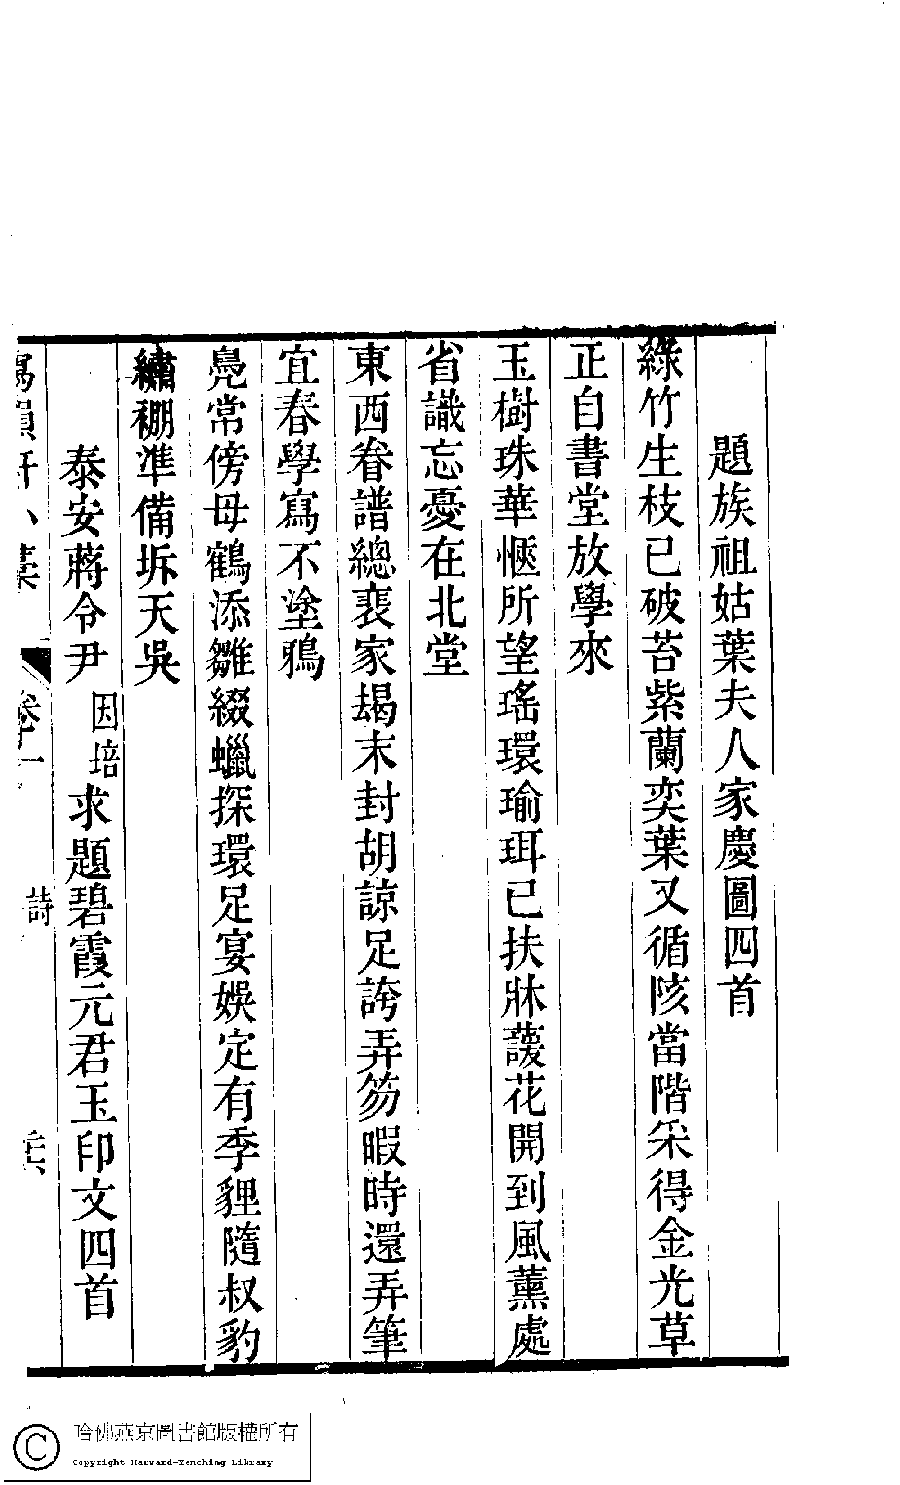 題族祖姑葉夫人家慶圖四首
綠竹生枝已破苔紫蘭奕葉又循陔當階采得金光草
正自書堂放學來
玉樹珠華愜所望瑤環瑜珥已扶牀蘐花開到風薰處
省識忘憂在北堂
東西眷譜總裴家朅末封胡諒足誇弄笏暇時還弄筆
宜春學寫不塗鴉
鳧常傍母鶴添雛綴蠟探環足宴娛定有季貍隨叔豹
繡棚準備坼天吳
泰安蔣令尹因培求題碧霞元君玉印文四首
韻軒小藁
卷十一
詩
哈佛燕京圖書館版權所有
Copyright Harvard-Yenching Library